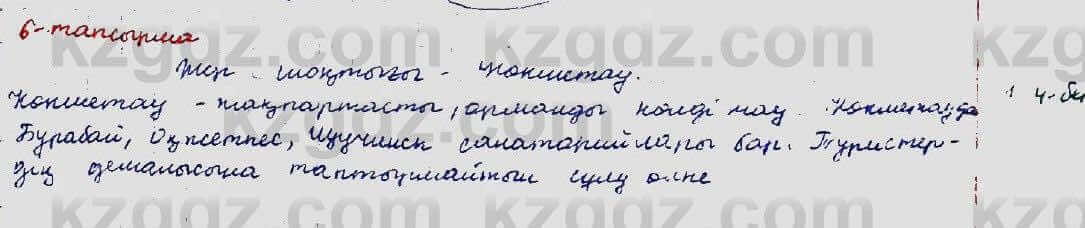 6-тапсырма
Жер шоқтығы - Көкшетау.
Көкшетау - жақпартасты, орманды көлді тау. Көкшетауда
Бурабай, Оқжетпес, Щучинск санаторийлары бар. Туристер-
дің демалысына таптырмайтын сұлу өлке